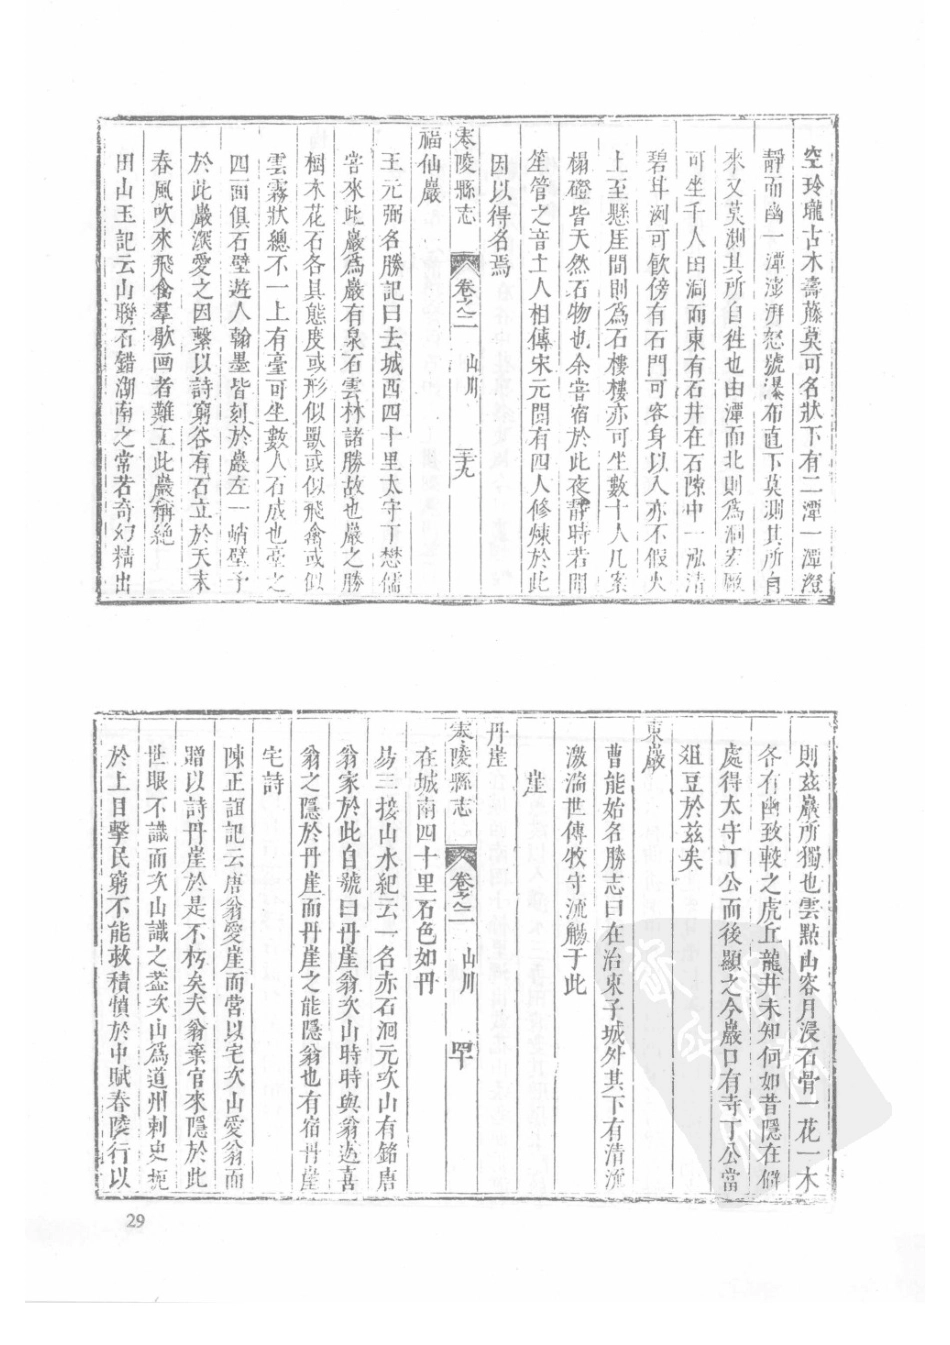 空玲瓏古木壽藤莫可名狀下有二潭一潭澄
靜而幽一潭澎湃怒號瀑布直下莫測其所自
來又莫測其所自徃也由潭而北則爲洞宏厰
可坐千人田洞而東有石井在石隙中一泓清
碧井冽可飲傍有石門可容身以入亦不假火
上至懸崖間則爲石樓樓亦可坐數十人几案
榻磴皆天然石物也余嘗宿於此夜靜時若聞
笙管之音土人相傳宋元間有四人修煉於此
因以得名焉
春陵縣志 卷之二 山川 三十九
福仙巖
王元弼名勝記曰去城西四十里太守丁懋儒
嘗來此巖爲巖有泉石雲林諸勝故也巖之勝
樹木花石各具態度或形似獸或似飛禽或似
雲霧狀總不一上有臺可坐數人石成也臺之
四面俱石壁遊人翰墨皆刻於巖左一峭壁予
於此巖深愛之因繫以詩窮谷有石立於天末
春風吹來飛禽羣歌画者難工此巖稱絶
田山玉記云山聯石錯湖南之常若奇幻精出
則兹巖所獨也雲點山容月浸石骨一花一木
各有幽致較之虎丘龍井未知何如昔隱在僻
處得太守丁公而後顯之今巖口有寺丁公當
俎豆於兹矣
東巖
曹能始名勝志曰在治東子城外其下有清流
激湍世傳牧守流觴于此
崖
丹崖
春陵縣志 卷之二 山川 四十
在城南四十里石色如丹
易三接山水紀云一名赤石洄元次山有銘唐
翁家於此自號曰丹崖翁次山時時與翁過喜
翁之隱於丹崖而丹崖之能隱翁也有宿丹崖
宅詩
陳正誼記云唐翁愛崖而嘗以宅次山愛翁而
贈以詩丹崖於是不朽矣夫翁棄官來隱於此
世眼不識而次山識之葢次山爲道州刺史扼
於上目擊民窮不能救積憤於中賦春陵行以
29